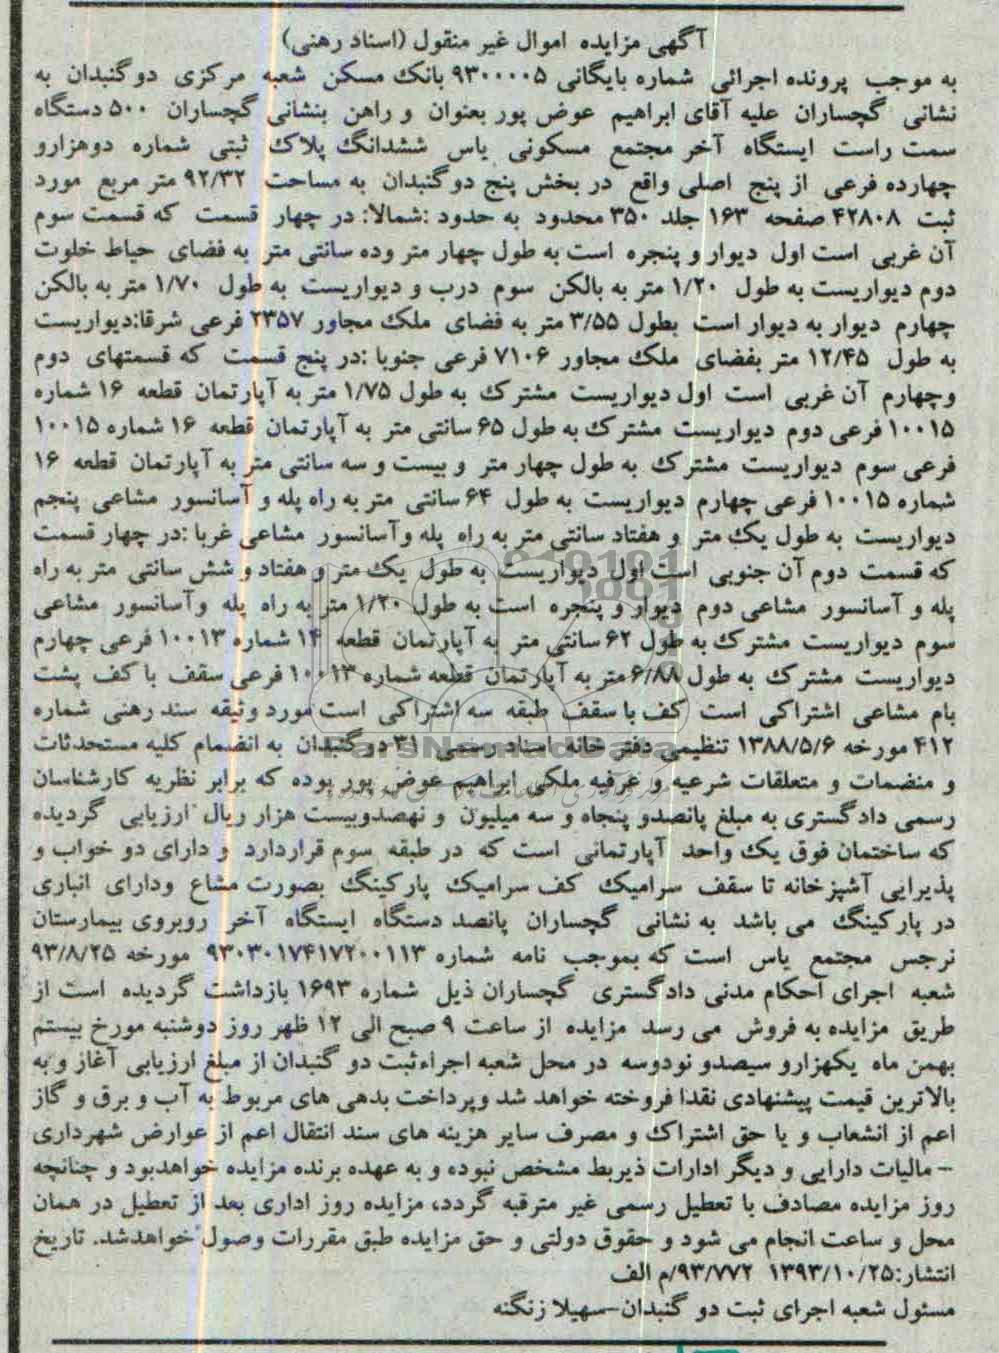 آگهی مزایده اموال غیر منقول (اسناد رهنی)
به موجب پرونده اجرائی شماره بایگانی ۹۳۰۰۰۰۵ بانک مسکن شعبه مرکزی دوگنبدان به
نشانی گچساران علیه آقای ابراهیم عوض پور بعنوان و راهن بنشانی گچساران ۵۰۰ دستگاه
سمت راست ایستگاه آخر مجتمع مسکونی یاس ششدانگ پلاک ثبتی شماره دوهزارو
چهارده فرعی از پنج اصلی واقع در بخش پنج دوگنبدان به مساحت ۹۲/۳۲ متر مربع مورد
ثبت ۴۲۸۰۸ صفحه ۱۶۳ جلد ۳۵۰ محدود به حدود :شمالا: در چهار قسمت که قسمت سوم
آن غربی است اول دیوار و پنجره است به طول چهار متر وده سانتی متر به فضای حیاط خلوت
دوم دیواریست به طول ۱/۲۰ متر به بالکن سوم درب و دیواریست به طول ۱/۷۰ متر به بالکن
چهارم دیوار به دیوار است بطول ۳/۵۵ متر به فضای ملک مجاور ۲۳۵۷ فرعی شرقا:دیواریست
به طول ۱۲/۴۵ متر بفضای ملک مجاور ۷۱۰۶ فرعی جنوبا :در پنج قسمت که قسمتهای دوم
وچهارم آن غربی است اول دیواریست مشترک به طول ۱/۷۵ متر به آپارتمان قطعه ۱۶ شماره
۱۰۰۱۵ فرعی دوم دیواریست مشترک به طول ۶۵ سانتی متر به آپارتمان قطعه ۱۶ شماره ۱۰۰۱۵
فرعی سوم دیواریست مشترک به طول چهار متر و بیست و سه سانتی متر به آپارتمان قطعه ۱۶
شماره ۱۰۰۱۵ فرعی چهارم دیواریست به طول ۶۴ سانتی متر به راه پله و آسانسور مشاعی پنجم
دیواریست به طول یک متر و هفتاد سانتی متر به راه پله وآسانسور مشاعی غربا :در چهار قسمت
که قسمت دوم آن جنوبی است اول دیواریست به طول یک متر و هفتاد و شش سانتی متر به راه
پله و آسانسور مشاعی دوم دیوار و پنجره است به طول ۱/۲۰ متر به راه پله وآسانسور مشاعی
سوم دیواریست مشترک به طول ۶۲ سانتی متر به آپارتمان قطعه ۱۴ شماره ۱۰۰۱۳ فرعی چهارم
دیواریست مشترک به طول ۶/۸۸ متر به آپارتمان قطعه شماره ۱۰۰۱۳ فرعی سقف با کف پشت
بام مشاعی اشتراکی است کف با سقف طبقه سه اشتراکی است مورد وثیقه سند رهنی شماره
۴۱۲ مورخه ۱۳۸۸/۵/۶ تنظیمی دفتر خانه اسناد رسمی ۳۱ دوگنبدان به انضمام کلیه مستحدثات
و منضمات و متعلقات شرعیه و عرفیه ملکی ابراهیم عوض پور بوده که برابر نظریه کارشناسان
رسمی دادگستری به مبلغ پانصدو پنجاه و سه میلیون و نهصدوبیست هزار ریال ارزیابی گردیده
که ساختمان فوق یک واحد آپارتمانی است که در طبقه سوم قراردارد و دارای دو خواب و
پذیرایی آشپزخانه تا سقف سرامیک کف سرامیک پارکینگ بصورت مشاع ودارای انباری
در پارکینگ می باشد به نشانی گچساران پانصد دستگاه ایستگاه آخر روبروی بیمارستان
نرجس مجتمع یاس است که بموجب نامه شماره ۹۳۰۳۰۱۷۴۱۷۲۰۰۱۱۳ مورخه ۹۳/۸/۲۵
شعبه اجرای احکام مدنی دادگستری گچساران ذیل شماره ۱۶۹۳ بازداشت گردیده است از
طریق مزایده به فروش می رسد مزایده از ساعت ۹ صبح الی ۱۲ ظهر روز دوشنبه مورخ بیستم
بهمن ماه یکهزارو سیصدو نودوسه در محل شعبه اجراءثبت دو گنبدان از مبلغ ارزیابی آغاز و به
بالاترین قیمت پیشنهادی نقدا فروخته خواهد شد وپرداخت بدهی های مربوط به آب و برق و گاز
اعم از انشعاب و یا حق اشتراک و مصرف سایر هزینه های سند انتقال اعم از عوارض شهرداری
– مالیات دارایی و دیگر ادارات ذیربط مشخص نبوده و به عهده برنده مزایده خواهدبود و چنانچه
روز مزایده مصادف با تعطیل رسمی غیر مترقبه گردد، مزایده روز اداری بعد از تعطیل در همان
محل و ساعت انجام می شود و حقوق دولتی و حق مزایده طبق مقررات وصول خواهدشد. تاریخ
انتشار:۱۳۹۳/۱۰/۲۵ ۹۳/۷۷۲/م الف
مسئول شعبه اجرای ثبت دو گنبدان–سهیلا زنگنه
ParsNamadData